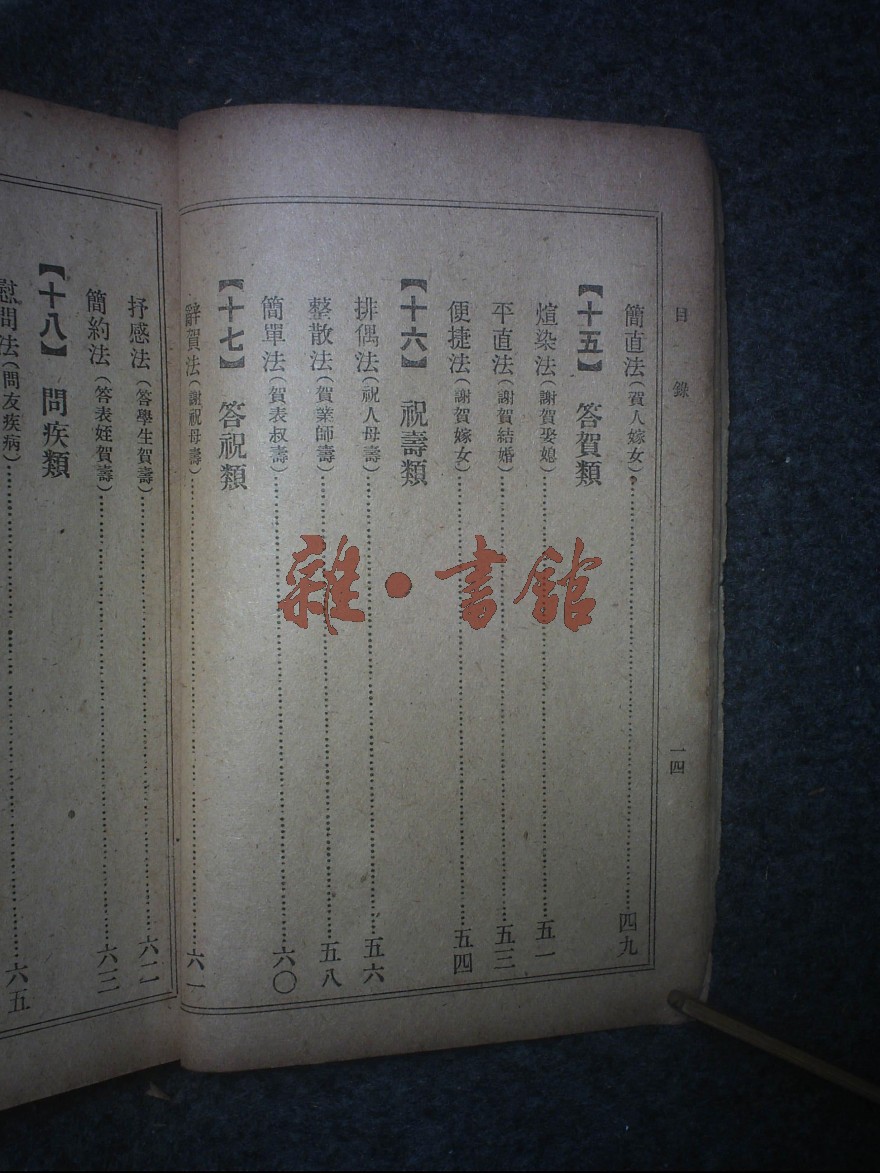 目錄
一四
簡直法(賀人嫁女)……四九
【十五】 答賀類
煊染法(謝賀娶媳)……五一
平直法(謝賀結婚)……五三
便捷法(謝賀嫁女)……五四
【十六】 祝壽類
排偶法(祝人母壽)……五六
整散法(賀業師壽)……五八
簡單法(賀表叔壽)……六〇
【十七】 答祝類
辭賀法(謝祝母壽)……六一
抒感法(答學生賀壽)……六二
簡約法(答表姪賀壽)……六三
【十八】 問疾類
慰問法(問友疾病)……六五
雜·書館